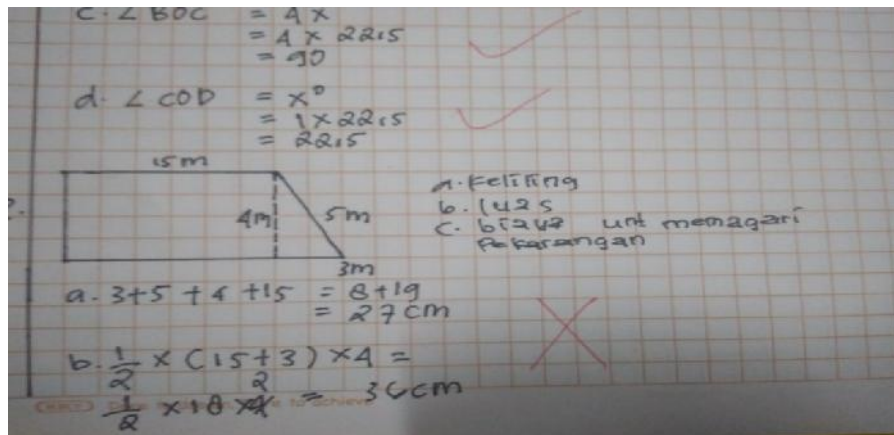 C. ∠ BOC = 4 x
= 4 x 22,5
= 90
d. ∠ COD = x°
= 1 x 22,5
= 22,5
15 m
4m
5m
3m
a. Keliling
b. luas
c. biaya unt memagari
Pekarangan
a. 3+5 + 4 +15 = 8+19
= 27 cm
b. 1/2 x (15+3) x 4 =
1/2 x 18 x 4 2 = 36 cm
to achieve